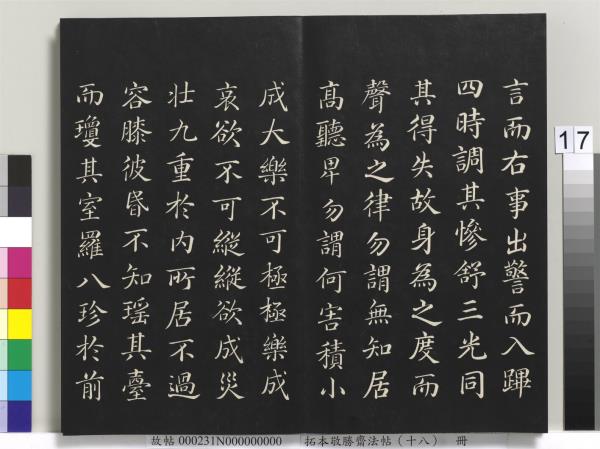 言而右事出警而入蹕
四時調其慘舒三光同
其得失故身為之度而
聲為之律勿謂無知居
高聽卑勿謂何害積小
成大樂不可極極樂成
哀欲不可縱縱欲成災
壯九重於內所居不過
容膝彼昏不知瑤其臺
而瓊其室羅八珍於前
17
故帖 000231N000000000 拓本敬勝齋法帖(十八) 冊